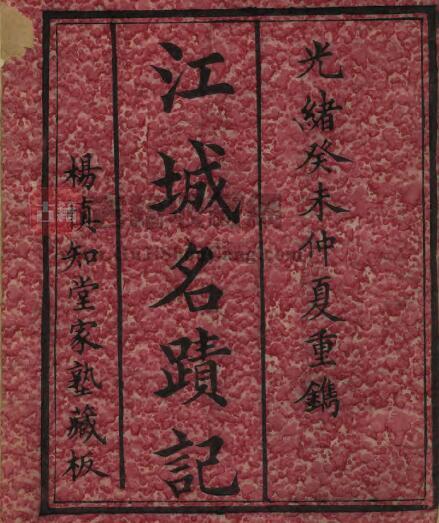 光緒癸未仲夏重鐫
江城名蹟記
楊慎知堂家塾藏板